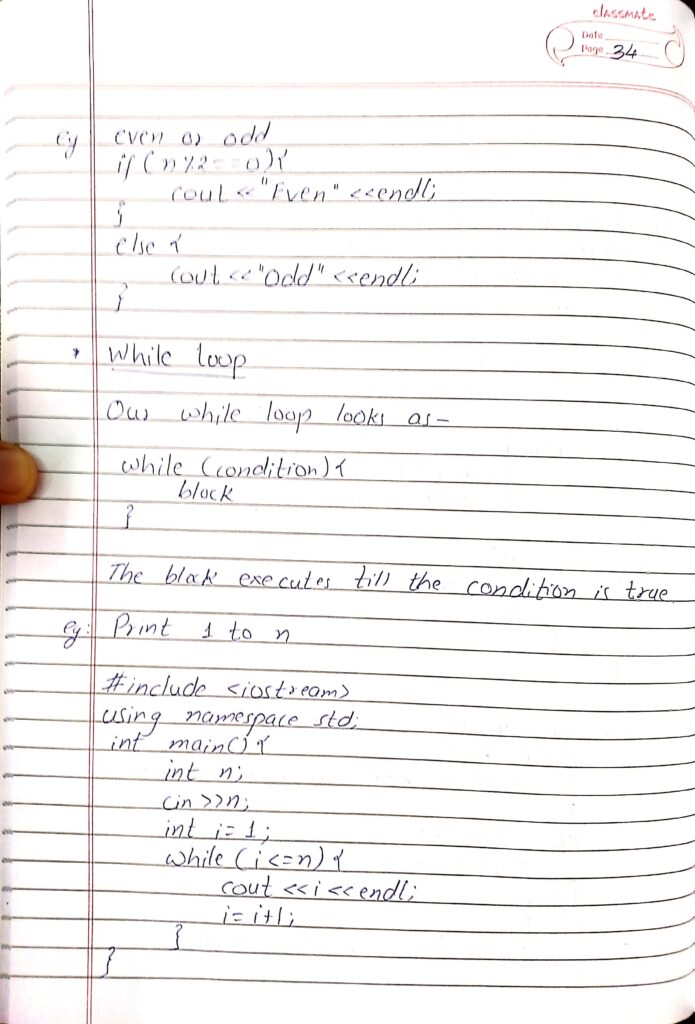 classmate
Date
Page 34
eg even or odd
if (n%2==0){
cout <<"Even" <<endl;
}
else {
cout <<"Odd" <<endl;
}
* While loop
Our while loop looks as-
while (condition){
block
}
The block executes till the condition is true
eg: Print 1 to n
#include <iostream>
using namespace std;
int main(){
int n;
cin >>n;
int i=1;
while (i<=n){
cout <<i<<endl;
i=i+1;
}
}